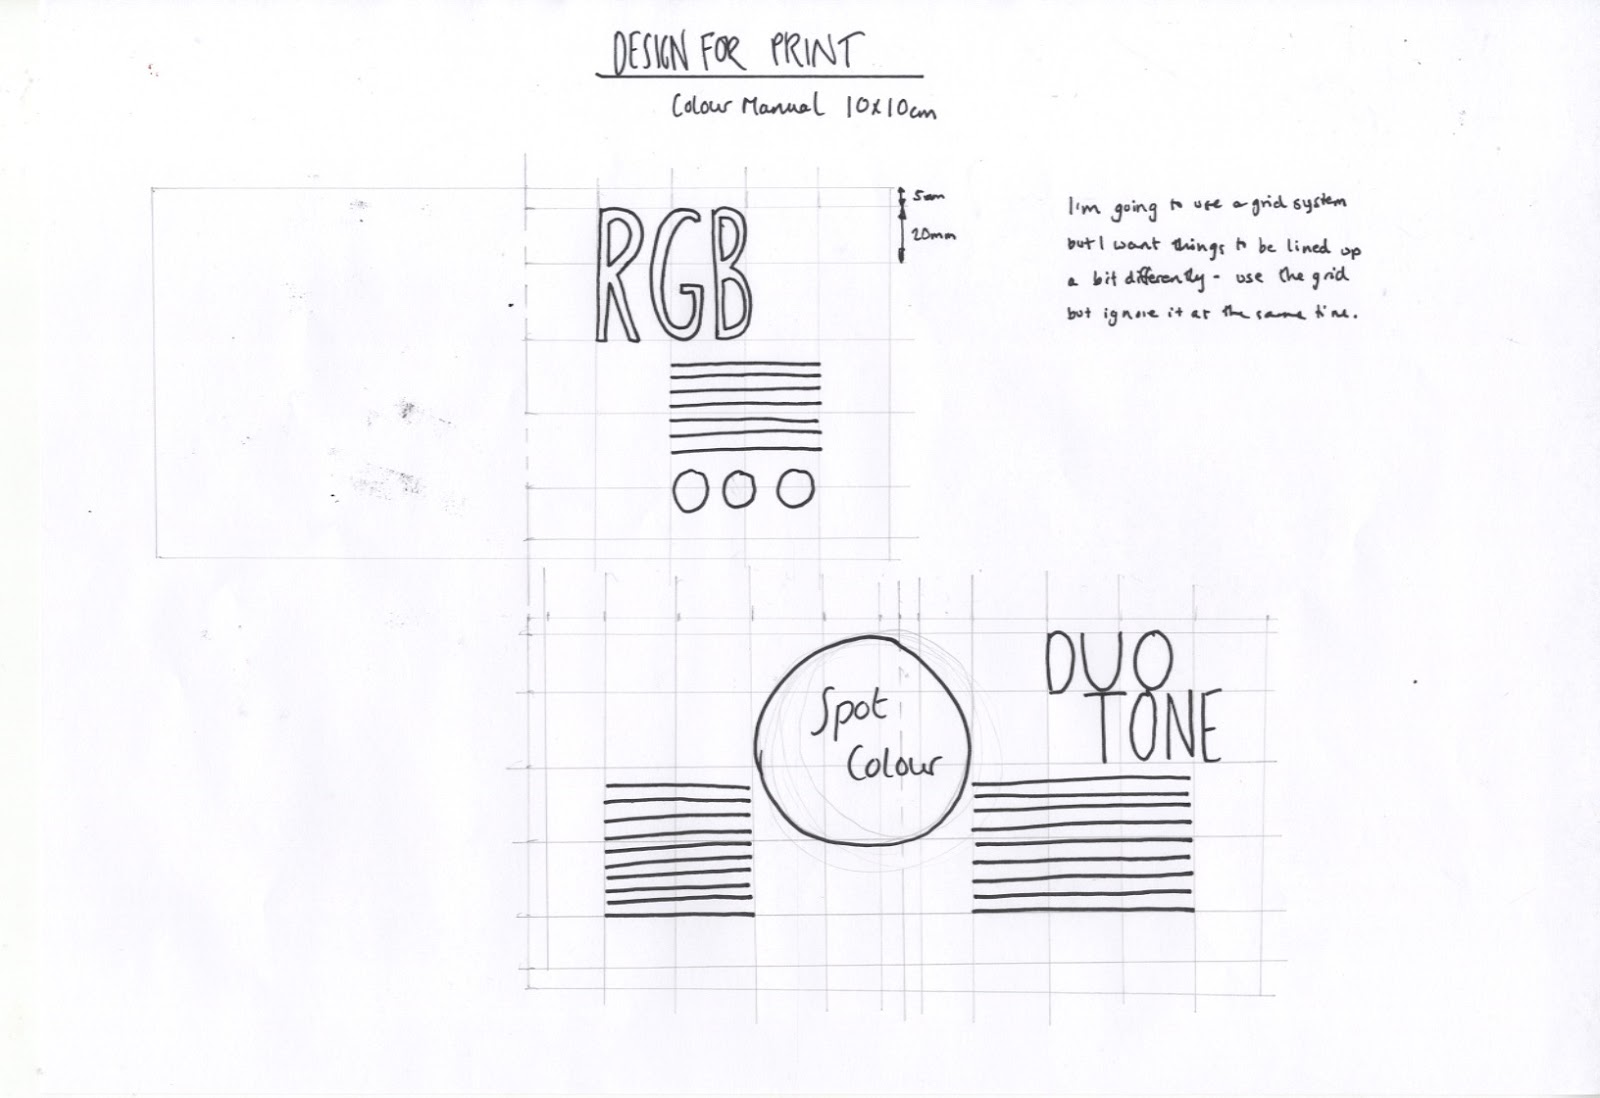 DESIGN FOR PRINT
Colour Manual 10x10cm
5mm
20mm
I'm going to use a grid system
but I want things to be lined up
a bit differently - use the grid
but ignore it at the same time.
RGB
Spot
Colour
DUO
TONE